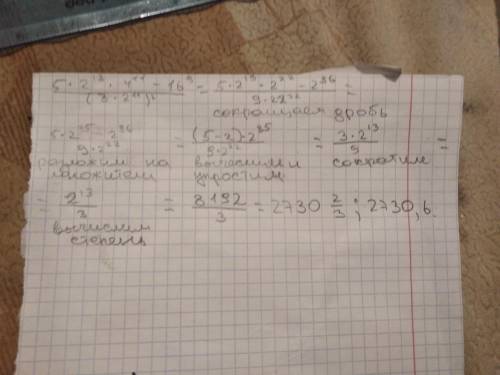 5·2¹³ · 4¹¹ - 16⁹ / (3·2¹¹)² = 5·2¹³·2²²-2³⁶ / 9·2²² =
сокращаем дробь
5·2³⁵-2³⁶ / 9·2²² = (5-2)·2³⁵ / 9·2²² = 3·2¹³ / 9 =
разложим на множители вычислим и упростим сократим
= 2¹³ / 3 = 8192 / 3 = 2730 2/3 ; 2730,6
вычислим степень